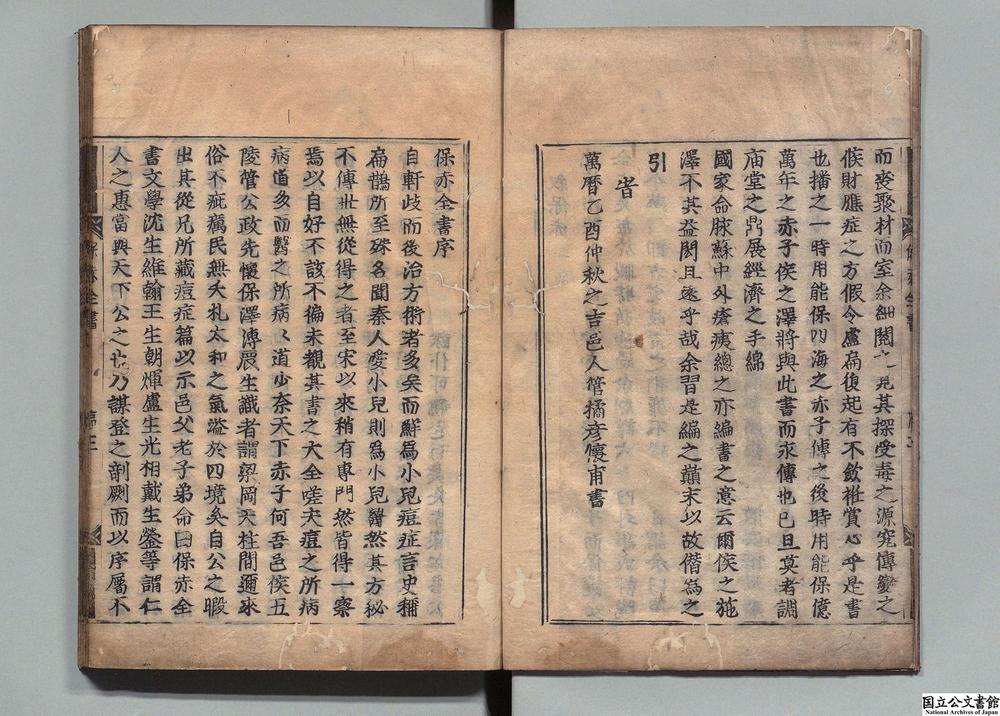 而喪聚材而室余細閱之見其探受毒之源究傳變之
候財應症之方假令盧扁復起有不歛袵賞心乎是書
也播之一時用能保四海之赤子傳之後時用能保億
萬年之赤子侯之澤將與此書而永傳也已旦莫者調
庙堂之鼎展經濟之手綿
國家命脉蘇中外瘡痍總之亦編書之意云爾侯之施
澤不其益閎且遠乎哉余習是編之顛末以故僭為之
引
旹
萬曆乙酉仲秋之吉邑人管橘彦懷甫書
保赤全書序
自軒歧而後治方術者多矣而鮮爲小兒痘症言史稱
扁鵲所至殊名聞秦人愛小兒則爲小兒醫然其方秘
不傳世無從得之者至宋以來稍有專門然皆得一察
焉以自好不該不徧未覩其書之大全嗟夫痘之所病
病道多而醫之所病病道少奈天下赤子何吾邑侯五
陵管公政先懷保澤溥晨生識者謂梁岡天柱間邇來
俗不疵癘民無夭札太和之氣溢於四境矣自公之暇
出其從兄所藏痘症篇以示邑父老子弟命曰保赤全
書文學沈生維翰王生朝煇盧生光相戴生鎣等謂仁
人之惠當與天下公之也乃謀登之剞劂而以序屬不
保赤全書
序二
国立公文書館
National Archives of Japan